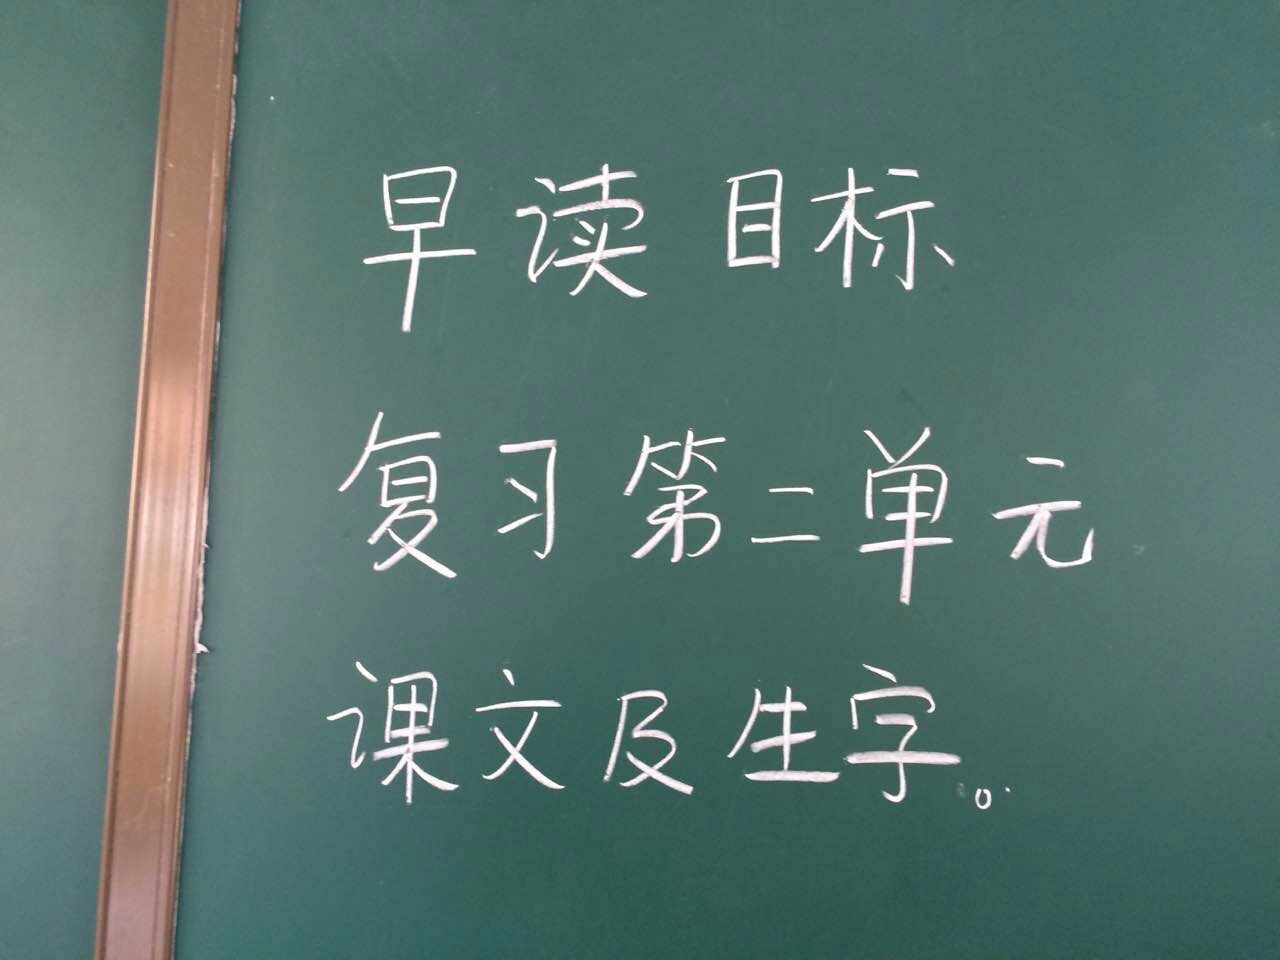 早读目标
复习第二单元
课文及生字。